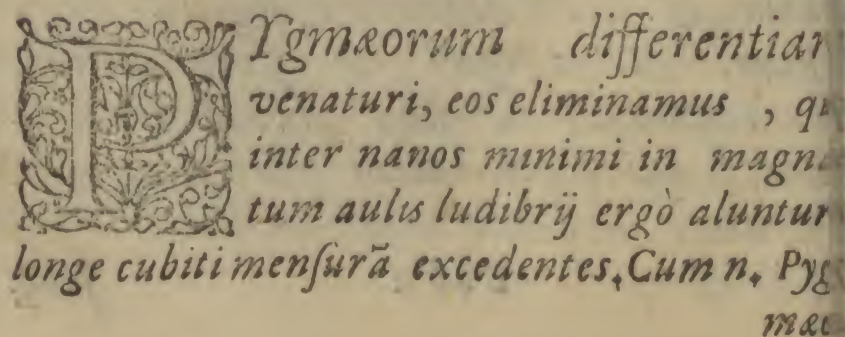 PYgmæorum differentiam
venaturi, eos eliminamus , qui
inter nanos minimi in magna
tum aulis ludibrij ergò aluntur
longe cubiti menſurã excedentes. Cum n. Pyg
mæo